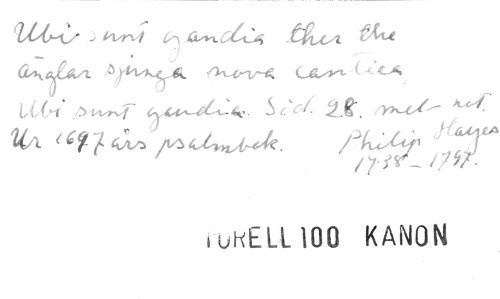 Ubi sunt gaudia ther the
änglar sjunga nova cantica,
Ubi sunt gaudia. Sid. 28. met not.
Ur 1697 års psalmbok. Philip Hayes
1738-1797.
TORELL 100 KANON